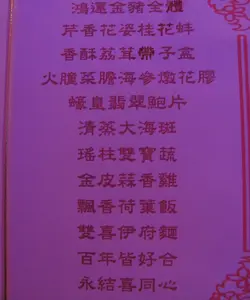 鴻運金豬全體
芹香花姿桂花蚌
香酥荔茸帶子盒
火腿菜膽海參燉花膠
蠔皇翡翠鮑片
清蒸大海斑
瑤柱雙寶蔬
金皮蒜香雞
飄香荷葉飯
雙喜伊府麵
百年皆好合
永結喜同心